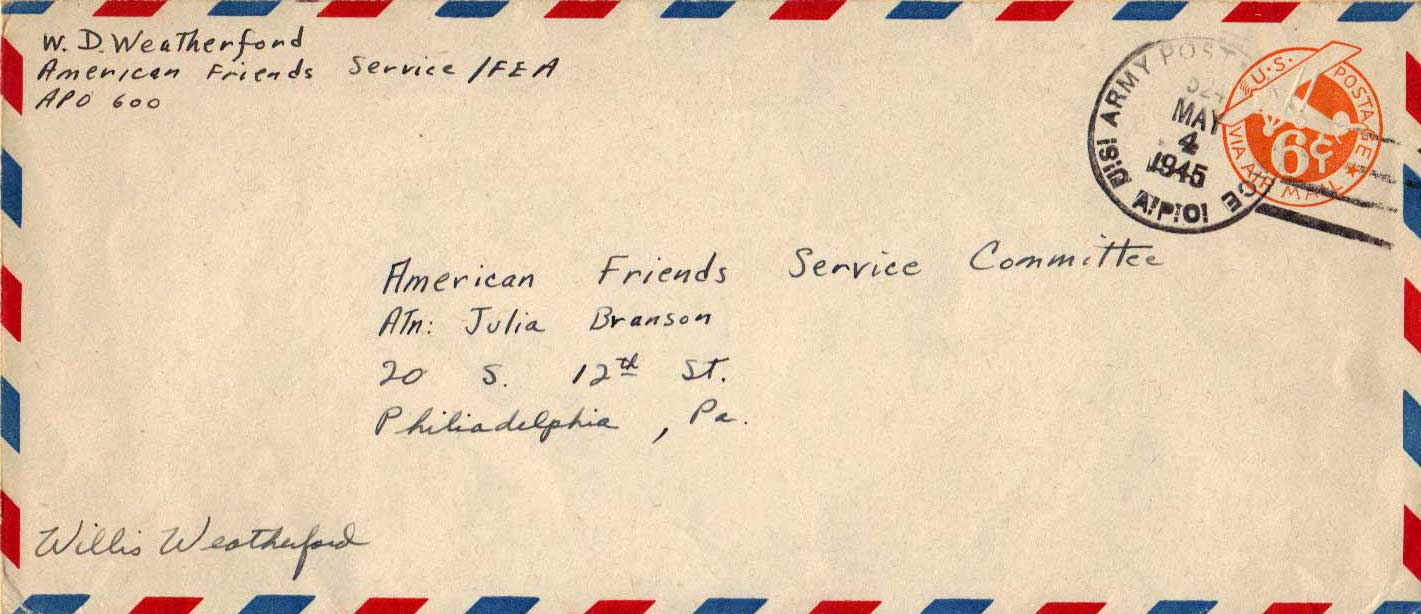 W. D. Weatherford
American Friends Service/FEA
APO 600
U.S. ARMY POST
MAY
4
1945
A.P.O.
U.S. POSTAGE
6¢
VIA AIR MAIL
American Friends Service Committee
Atn: Julia Branson
20 S. 12th St.
Philiadelphia, Pa.
Willis Weatherford